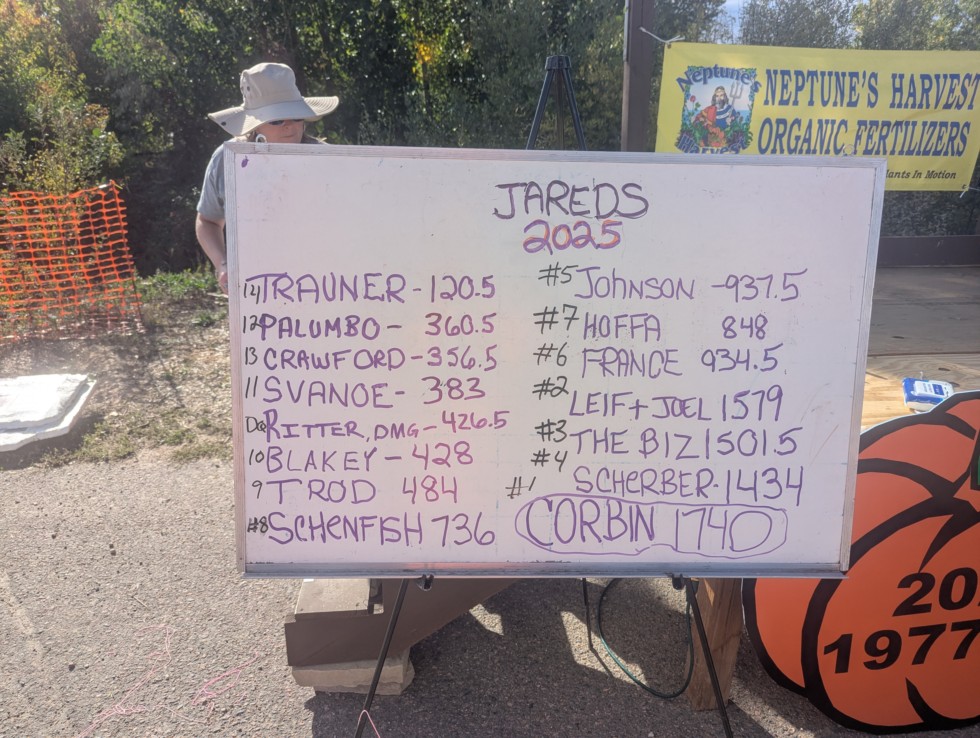 Neptune's
NEPTUNE'S HARVEST
ORGANIC FERTILIZERS
lants In Motion
JAREDS
2025
14 TRAUNER - 120.5
12 PALUMBO - 360.5
13 CRAWFORD - 356.5
11 SVANOE - 383
RITTER, DMG - 426.5
10 BLAKEY - 428
9 TROD 484
#8 SCHENFISH 736
#5 JOHNSON - 937.5
#7 HOFFA 848
#6 FRANCE 934.5
#2 LEIF + JOEL 1579
#3 THE BIZ 1501.5
#4 SCHERBER - 1434
#1 CORBIN 1740
20
1977